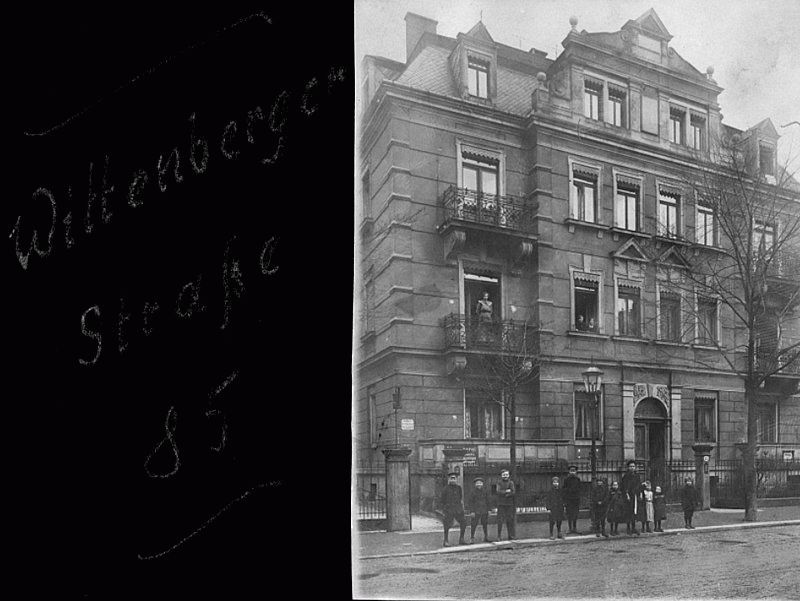 Wittenberger
Straße
85